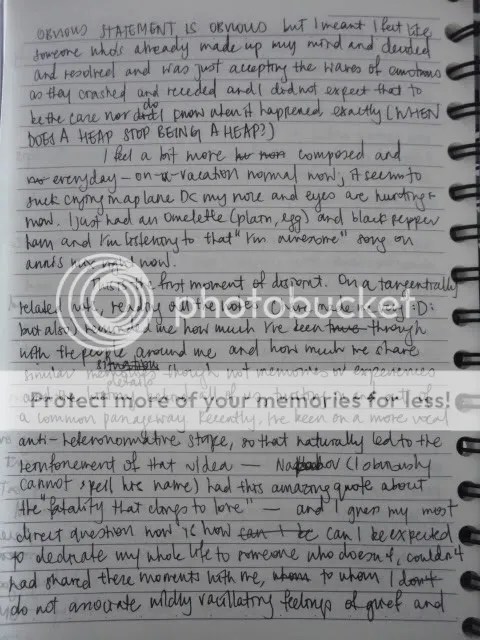 OBVIOUS STATEMENT IS OBVIOUS but I meant I felt like
someone who's already made up my mind and decided
and resolved and was just accepting the waves of emotions
as they crashed and receded and I did not expect that to
be the case nor do I know when it happened exactly (WHEN
DOES A HEAP STOP BEING A HEAP?)
I feel a bit more composed and
everyday-on-a-vacation normal now; it seems to
suck crying in a plane D< my nose and eyes are hurting
now. I just had an omelette (plain, egg) and black pepper
ham and I'm listening to that "I'm awesome" song on
right now.
This is the first moment of disjoint. On a tangentially
related note, reading old notes me :D:
but also reminded me how much I've been through
with the people around me and how much we share
similar though not memories or experiences
details
photobucket
Protect more of your memories for less!
a common Recently, I've been on a more vocal
anti-heteronormative stage, so that naturally led to the
reinforcement of that idea — (I obviously
cannot spell his name) had this amazing quote about
the "fatality that clings to love" — and I guess my most
direct question now is how can I be can I be expected
to dedicate my whole life to someone who doesn't, couldn't
had shared these moments with me, whom to whom I don't
do not associate wildly vacillating feelings of grief and